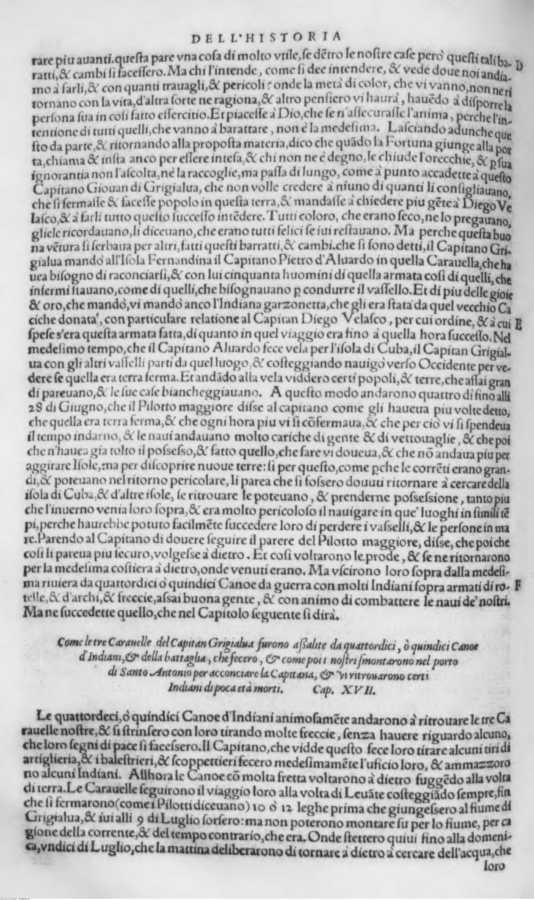 DELL'HISTORIA
rare piu auanti. questa pare vna cosa di molto vtile, se dētro le nostre case però questi tali ba- D
ratti, & cambi si facessero. Ma chi l'intende, come si dee intendere, & vede doue noi andia-
mo à farli, & con quanti trauagli, & pericoli: onde la metà di color, che vi vanno, non ne ri
tornano con la vita, d'altra sorte ne ragiona, & altro pensiero vi haurà, hauēdo à disporre la
persona sua in cosi fatto essercitio. Et piacesse à Dio, che se n'assecurasse l'anima, perche l'in-
tentione di tutti quelli, che vanno à barattare, non è la medesima. Lasciando adunche que
sto da parte, & ritornando alla proposta materia, dico che quādo la Fortuna giunge alla por
ta, chiama & insta anco per essere intesa, & chi non ne è degno, le chiude l'orecchie, & ꝑ sua
ignorantia non l'ascolta, né la raccoglie, ma passa di lungo, come à punto accadette à questo
Capitano Giouan di Grigialua, che non volle credere à niuno di quanti li consigliauano,
che si fermasse & facesse popolo in questa terra, & mandasse à chiedere piu gēte à Diego Ve
lasco, & à farli tutto questo successo intēdere. Tutti coloro, che erano seco, ne lo pregauano,
gliele ricordauano, li diceuano, che erano tutti felici se iui restauano. Ma perche questa buo
na vētura si serbaua per altri, fatti questi barratti, & cambi. che si sono detti, il Capitano Gri-
gialua mandò all'Isola Fernandina il Capitano Pietro d'Aluardo in quella Carauella, che ha
uea bisogno di raconciarsi, & con lui cinquanta huomini di quella armata cosi di quelli, che
infermi stauano, come di quelli, che bisognauano ꝑ condurre il vassello. Et di piu delle gioie
& oro, che mandò, vi mandò anco l'Indiana garzonetta, che gli era stata da quel vecchio Ca
ciche donata, con particulare relatione al Capitan Diego Velasco, per cui ordine, & à cui E
spese s'era questa armata fatta, di quanto in quel viaggio era fino à quella hora successo. Nel
medesimo tempo, che il Capitano Aluardo fece vela per l'isola di Cuba, il Capitan Grigial-
ua con gli altri vasselli partì da quel luogo, & costeggiando nauigò verso Occidente per ve-
dere se quella era terra ferma. Et andādo alla vela viddero certi popoli, & terre, che assai gran
di pareuano, & le sue case biancheggiauano. A questo modo andarono quattro dì fino alli
28 di Giugno, che il Pilotto maggiore disse al capitano come gli haueua piu volte detto,
che quella era terra ferma, & che ogni hora piu vi si cōfermaua, & che per ciò vi si spendeua
il tempo indarno, & le naui andauano molto cariche di gente & di vettouaglie, & che poi
che n'hauea gia tolto il possesso, & fatto quello, che fare vi doueua, & che nō andaua piu per
aggirare Isole, ma per discoprire nuoue terre: si per questo, come ꝑche le corrēti erano gran-
di, & poteuano nel ritorno pericolare, li parea che si fossero douuti ritornare à cercare della
isola di Cuba, & d'altre isole, se ritrouare le poteuano, & prenderne possessione, tanto piu
che l'inuerno venia loro sopra, & era molto pericoloso il nauigare in que' luoghi in simili tē
pi, perche haurebbe potuto facilmēte succedere loro di perdere i vasselli, & le persone in ma
re. Parendo al Capitano di douere seguire il parere del Pilotto maggiore, disse, che poi che
cosi li pareua piu securo, volgesse à dietro. Et cosi voltarono le prode, & se ne ritornarono
per la medesima costiera à dietro, onde venuti erano. Ma vscirono loro sopra dalla medesi-
ma riuiera da quattordici ò quindici Canoe da guerra con molti Indiani sopra armati di ro- F
telle, & d'archi, & freccie, assai buona gente, & con animo di combattere le naui de' nostri.
Ma ne succedette quello, che nel Capitolo seguente si dirà.
Come le tre Carauelle del Capitan Grigialua furono assalite da quattordici, ò quindici Canoe
d'Indiani, & della battaglia, che fecero, & come poi i nostri smontarono nel porto
di Santo Antonio per acconciare la Capitana, & vi ritrouarono certi
Indiani di poca età morti. Cap. XVII.
Le quattordeci, ò quindici Canoe d'Indiani animosamēte andarono à ritrouare le tre Ca
rauelle nostre, & si strinsero con loro tirando molte freccie, senza hauere riguardo alcuno,
che loro segni di pace si facessero. Il Capitano, che vidde questo fece loro tirare alcuni tiri di
artiglieria, & i balestrieri, & scoppettieri fecero medesimamēte l'uficio loro, & ammazzoro
no alcuni Indiani. Allhora le Canoe cō molta fretta voltarono à dietro fuggēdo alla volta
di terra. Le Carauelle seguirono il viaggio loro alla volta di Leuāte costeggiādo sempre, fin
che si fermarono (come i Pilotti diceuano) 10 ò 12 leghe prima che giungessero al fiume di
Grigialua, & iui alli 9 di Luglio sorsero: ma non poterono montare su per lo fiume, per ca
gione della corrente, & del tempo contrario, che era. Onde stettero quiui fino alla domeni-
ca, vndici di Luglio, che la mattina deliberarono di tornare à dietro à cercare dell'acqua, che
loro